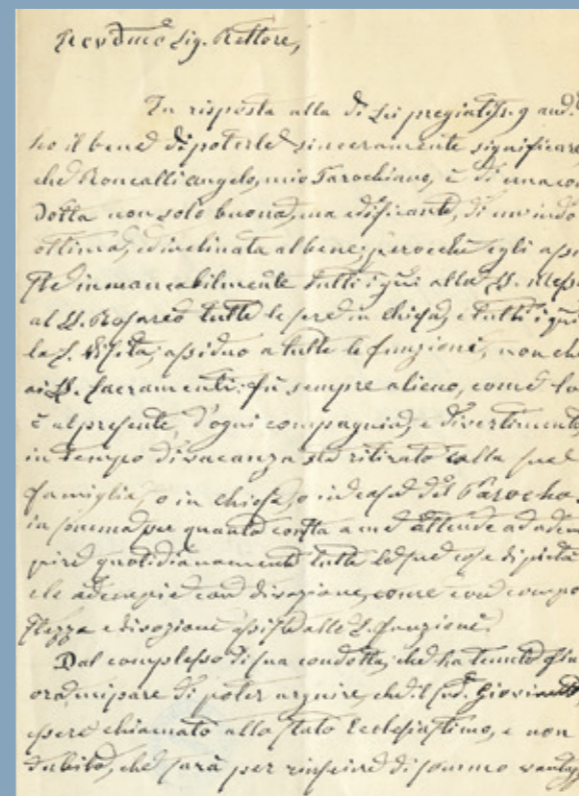 Revdmo Sig. Rettore,
In risposta alla di Lei pregiatiss. 9 and.
ho il bene di poterle sinceramente significare
che Roncalli Angelo, mio Parochiano, è di una con
dotta non solo buona, ma edificante, di un'indo
ottima, ed inclinata al bene; perocchè egli assi
ste immancabilmente tutti i gni alla S. Messa
al S. Rosario tutte le sere in chiesa, e tutti i gni
la S. Visita; assiduo a tutte le funzioni, non che
ai S. Sacramenti: fù sempre alieno, come lo
è al presente, d'ogni compagnia, e divertimento
in tempo di vacanza sta ritirato colla sua
famiglia, o in chiesa, o in casa del Parocho
in somma per quanto consta a me attende ad adem
pire quotidianamente tutte le sue cose di pietà
e le adempie con divozione, come con compo
stezza e divozione assiste alle S. funzioni.
Dal complesso di sua condotta, che ha tenuto fin
ora, mi pare di poter arguire, che il sud. Giovine
essere chiamato allo stato Ecclesiastimo, e non
dubito, che sarà per riuscire di sommo vantagg